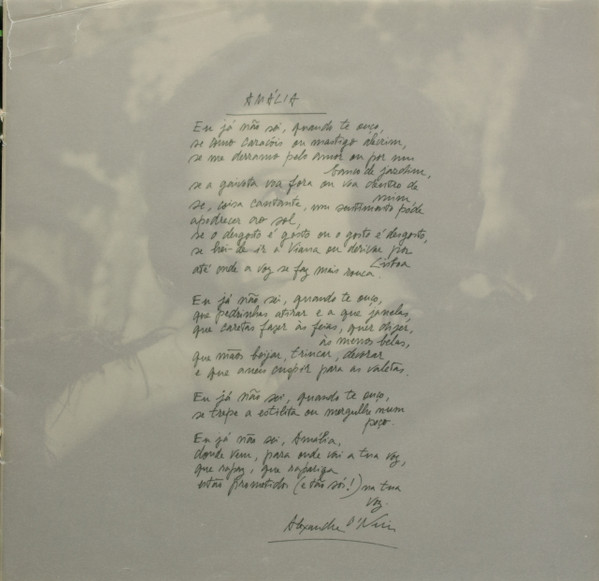 AMÁLIA
Eu já não sei, quando te ouço,
se como caracóis ou mastigo alecrim,
se me derramo pelo amor ou por um
banco de jardim,
se a gaivota voa fora ou voa dentro de
mim
se, coisa cantante, um sentimento pode
apodrecer ao sol,
se o desgosto é gosto ou o gosto é desgosto,
se hei-de ir a Viana ou derivar por
Lisboa
até onde a voz se faz mais rouca.
Eu já não sei, quando te ouço,
que pedrinhas atirar e a que janelas,
que caretas fazer às feias, quer dizer,
às menos belas,
que mãos beijar, trincar, devorar
e que anéis cuspir para as valetas.
Eu já não sei, quando te ouço,
se trepe a estilita ou mergulhe num
poço.
Eu já não sei, Amália,
donde vem, para onde vai a tua voz,
que rapaz, que rapariga
estão prometidos (e tão sós!) na tua
voz.
Alexandre O'Neill